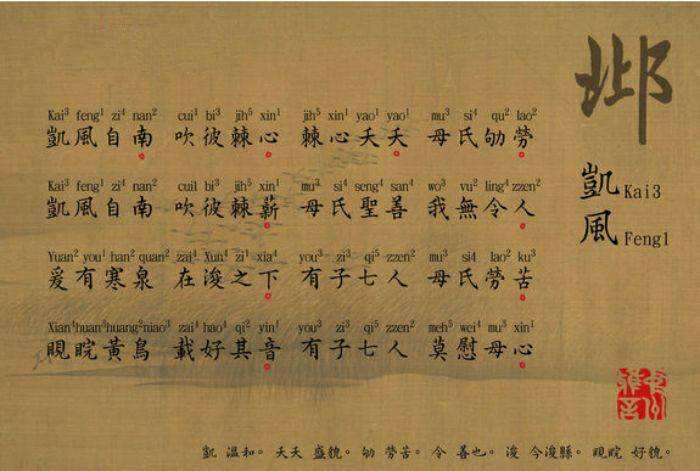 邶
凱 Kai3
風 Feng1
Kai³ feng¹ zi⁴ nan² cui¹ bi³ jih⁵ xin¹ jih⁵ xin¹ yao¹ yao¹ mu³ si⁴ qu² lao²
凱風自南 吹彼棘心 棘心夭夭 母氏劬勞
Kai³ feng¹ zi⁴ nan² cuil bi³ jih⁵ xin¹ mu³ si⁴ seng⁴ san⁴ wo³ vu² ling⁴ zzen²
凱風自南 吹彼棘薪 母氏聖善 我無令人
Yuan² you¹ han² quan² zai⁴ Xun⁴ zi¹ xia⁴ you³ zi³ qi⁵ zzen² mu³ si⁴ lao² ku³
爰有寒泉 在浚之下 有子七人 母氏勞苦
Xian⁴huan³huang²niao³ zai⁴ hao⁴ qi² yin¹ you³ zi³ qi⁵ zzen² meh⁵ wei⁴ mu³ xin¹
睍睆黃鳥 載好其音 有子七人 莫慰母心
凱 溫和。夭夭 盛貌。劬 勞苦。令 善也。浚 今浚縣。睍睆 好貌。